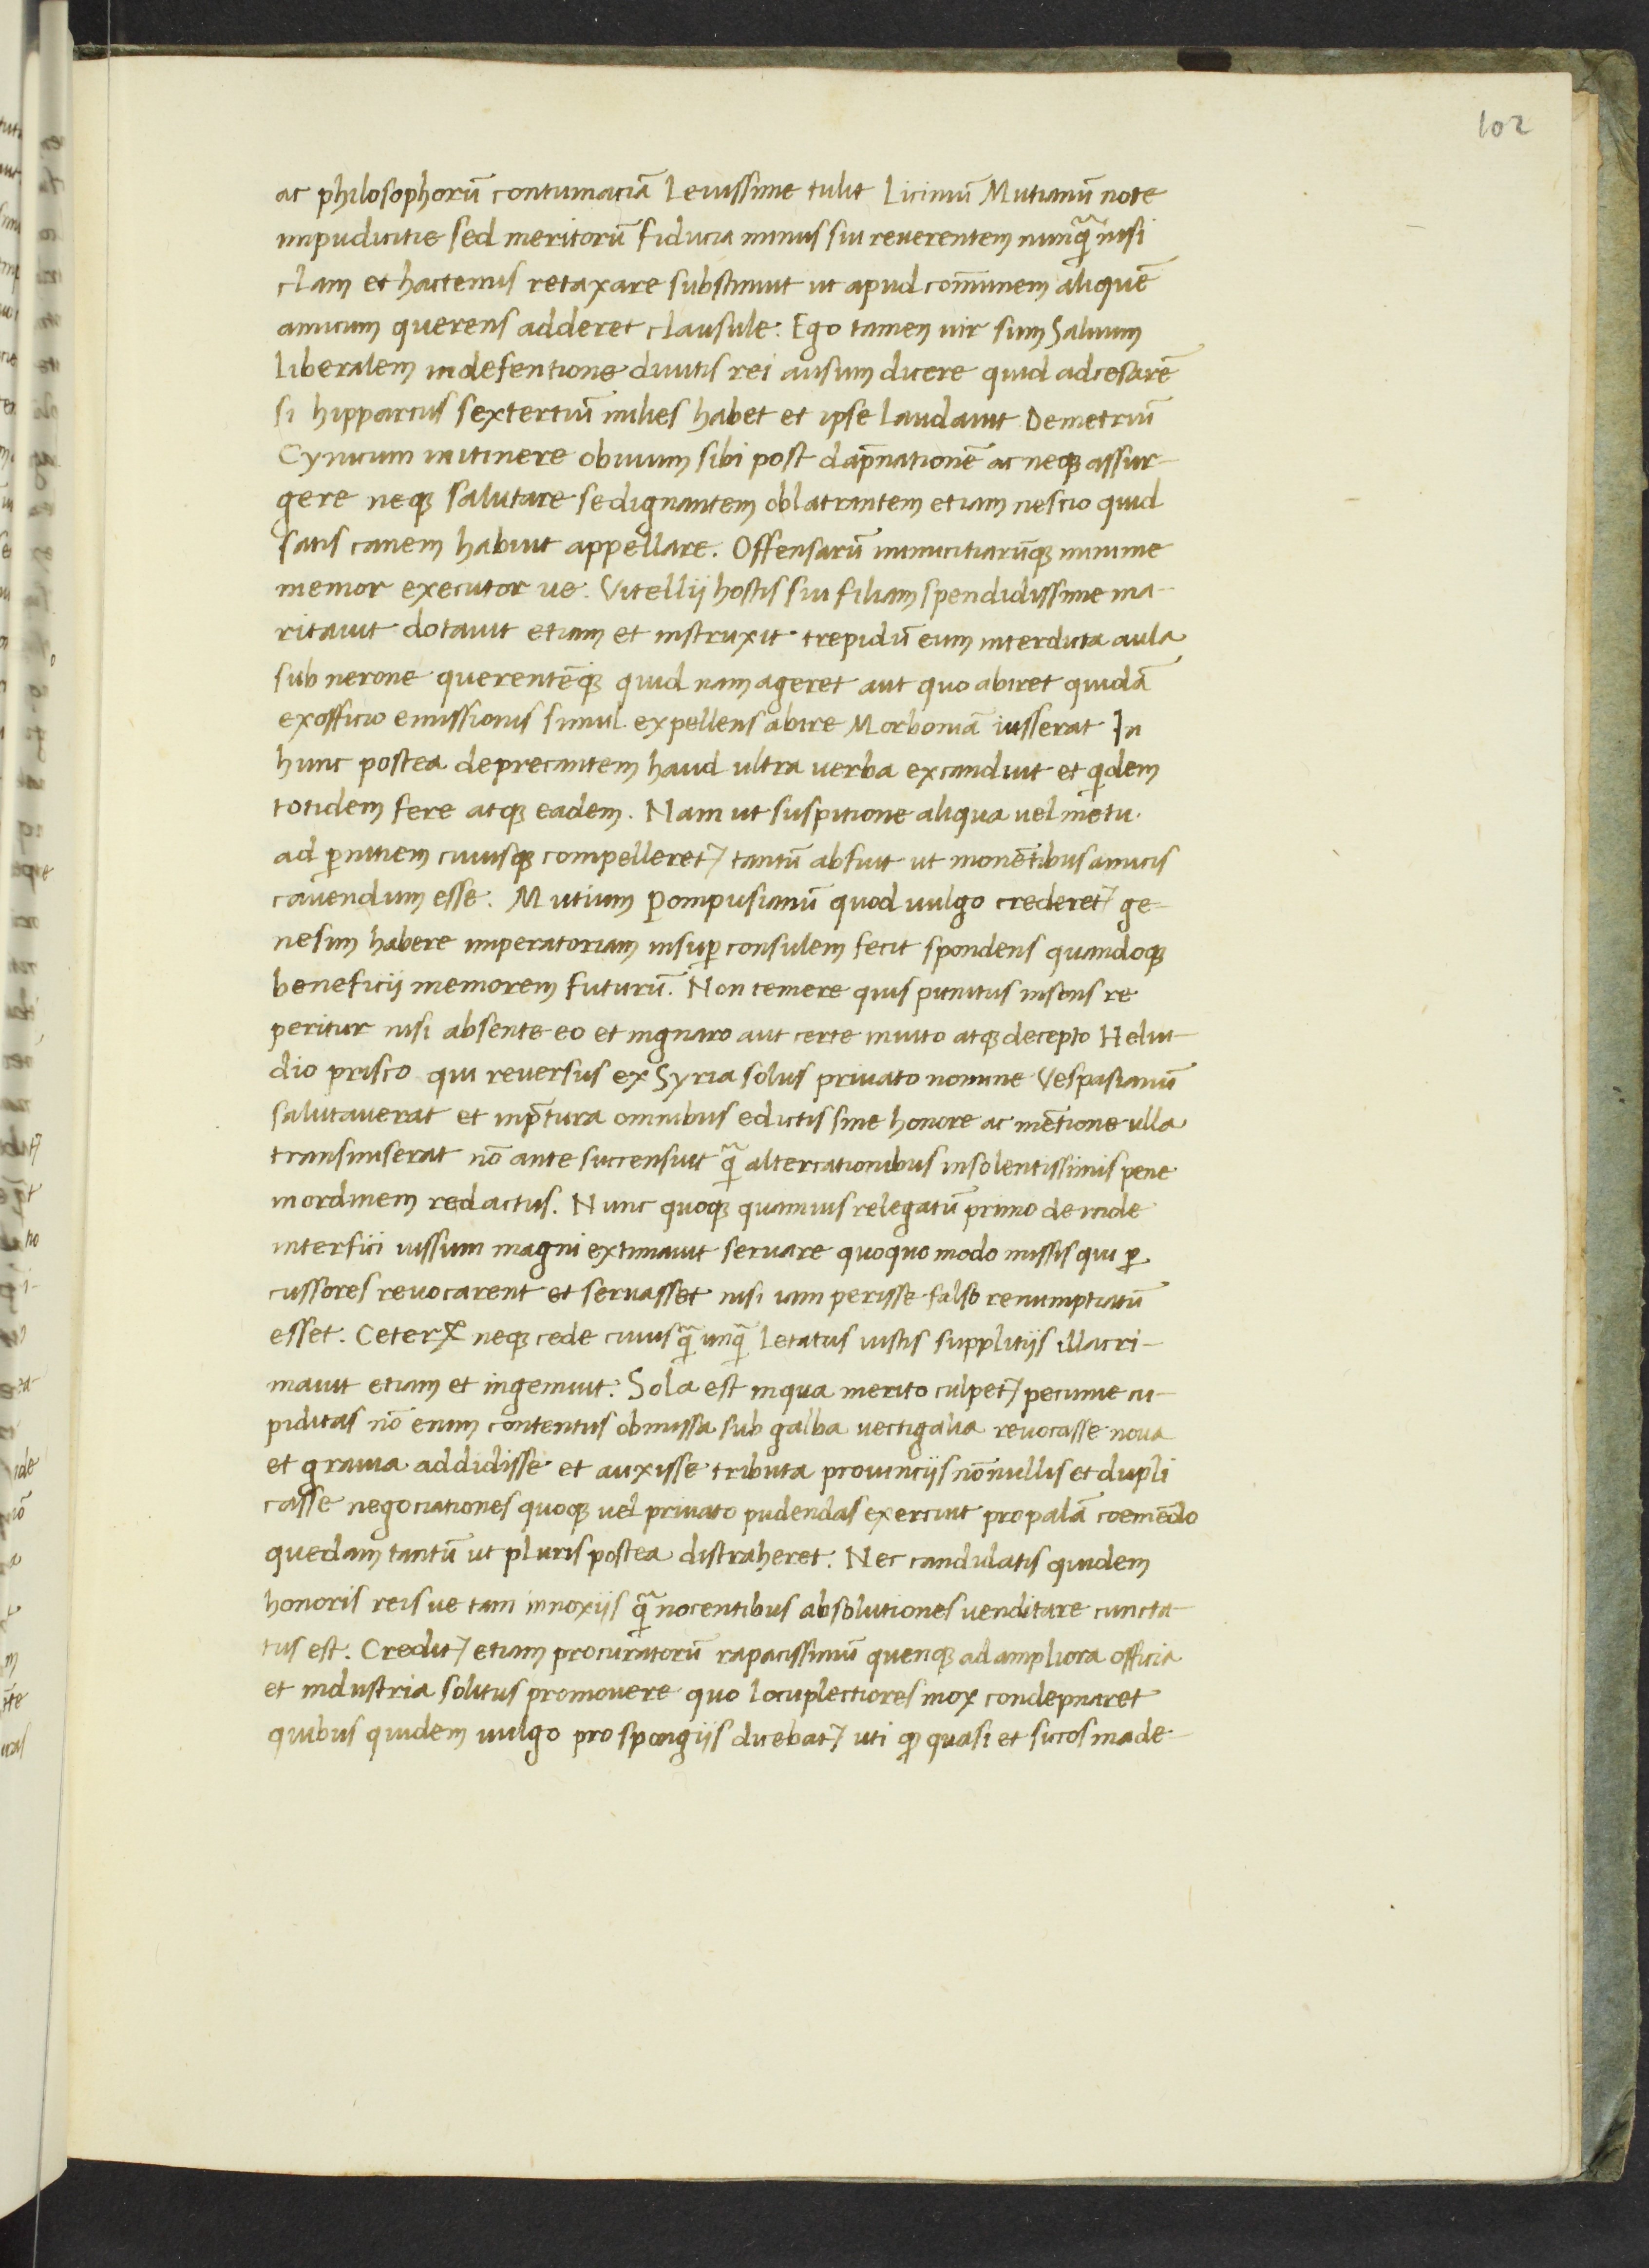 102
ac philosophorū contumaciā leuissime tulit Liciniū Mutianū note
impudicitie sed meritorū fiducia minus sui reuerentem nunꝙ̃ nisi
clam et hactenus retaxare substinuit ut apud com̄unem aliquē
amicum querens adderet clausule. Ego tamen uir sum Saluium
liberalem in defentione diuitis rei ausum dicere quid ad cesarē
si hipparcus sextertiū milies habet et ipse laudauit Demetriū
Cynicum in itinere obuium sibi post dāpnationē ac neqꝫ assur-
gere neqꝫ salutare se dignantem oblatrantem etiam nescio quid
satis canem habuit appellare. Offensarū inimicitiarūqꝫ minime
memor executor ue. Vitellij hostis sui filiam spendidissime ma-
ritauit dotauit etiam et instruxit trepidū eum interdicta aula
sub nerone querentēqꝫ quid nam ageret aut quo abiret quidā
ex officio emissionis simul expellens abire Morboniā iusserat In
hunc postea deprecantem haud ultra uerba excanduit et qidem
totidem fere atqꝫ eadem. Nam ut suspitione aliqua uel metu
ad ꝑnitiem cuiusqꝫ compelleret᷑ tantū abfuit ut monētibus amicis
cauendum esse. Mutium Pompusianū quod uulgo crederet᷑ ge-
nesim habere imperatoriam insuꝑ consulem fecit spondens quandoqꝫ
beneficij memorem futurū. Non temere quis punitus insons re
peritur nisi absente eo et ingnaro aut certe inuito atqꝫ decepto Helui-
dio prisco qui reuersus ex Syria solus priuato nomine Vespasianū
salutauerat et in p̄tura omnibus edictis sine honore ac mētione ulla
transmiserat nō ante succensuit ꝙ̃ altercationibus insolentissimis pene
in ordinem redactus. Nunc quoqꝫ quamuis relegatū primo deinde
interfici iussum magni extimauit seruare quoquo modo missis qui ꝑ
cussores reuocarent et seruasset nisi iam perisse falso renumptiatū
esset. Ceterꝝ neqꝫ cede cuiusꝙ̃ unꝙ̃ letatus iustis supplitijs illacri-
mauit etiam et ingemuit. Sola est in qua merito culpet᷑ pecunie cu-
piditas nō enim contentus obmissa sub galba uectigalia reuocasse noua
et grauia addidisse et auxisse tributa prouincijs nōnullis et dupli
casse negociationes quoqꝫ uel priuato pudendas exercuit propalā coemēdo
quedam tantū ut pluris postea distraheret. Nec candidatis quidem
honoris reis ue tam innoxijs ꝙ̃ nocentibus absolutiones uenditare cuncta-
tus est. Credit᷑ etiam procuratorū rapacissimū quenqꝫ ad ampliora officia
et industria solitus promouere quo locuplectiores mox condepnaret
quibus quidem uulgo pro spongijs dicebat᷑ uti ꝙ quasi et sicos made-